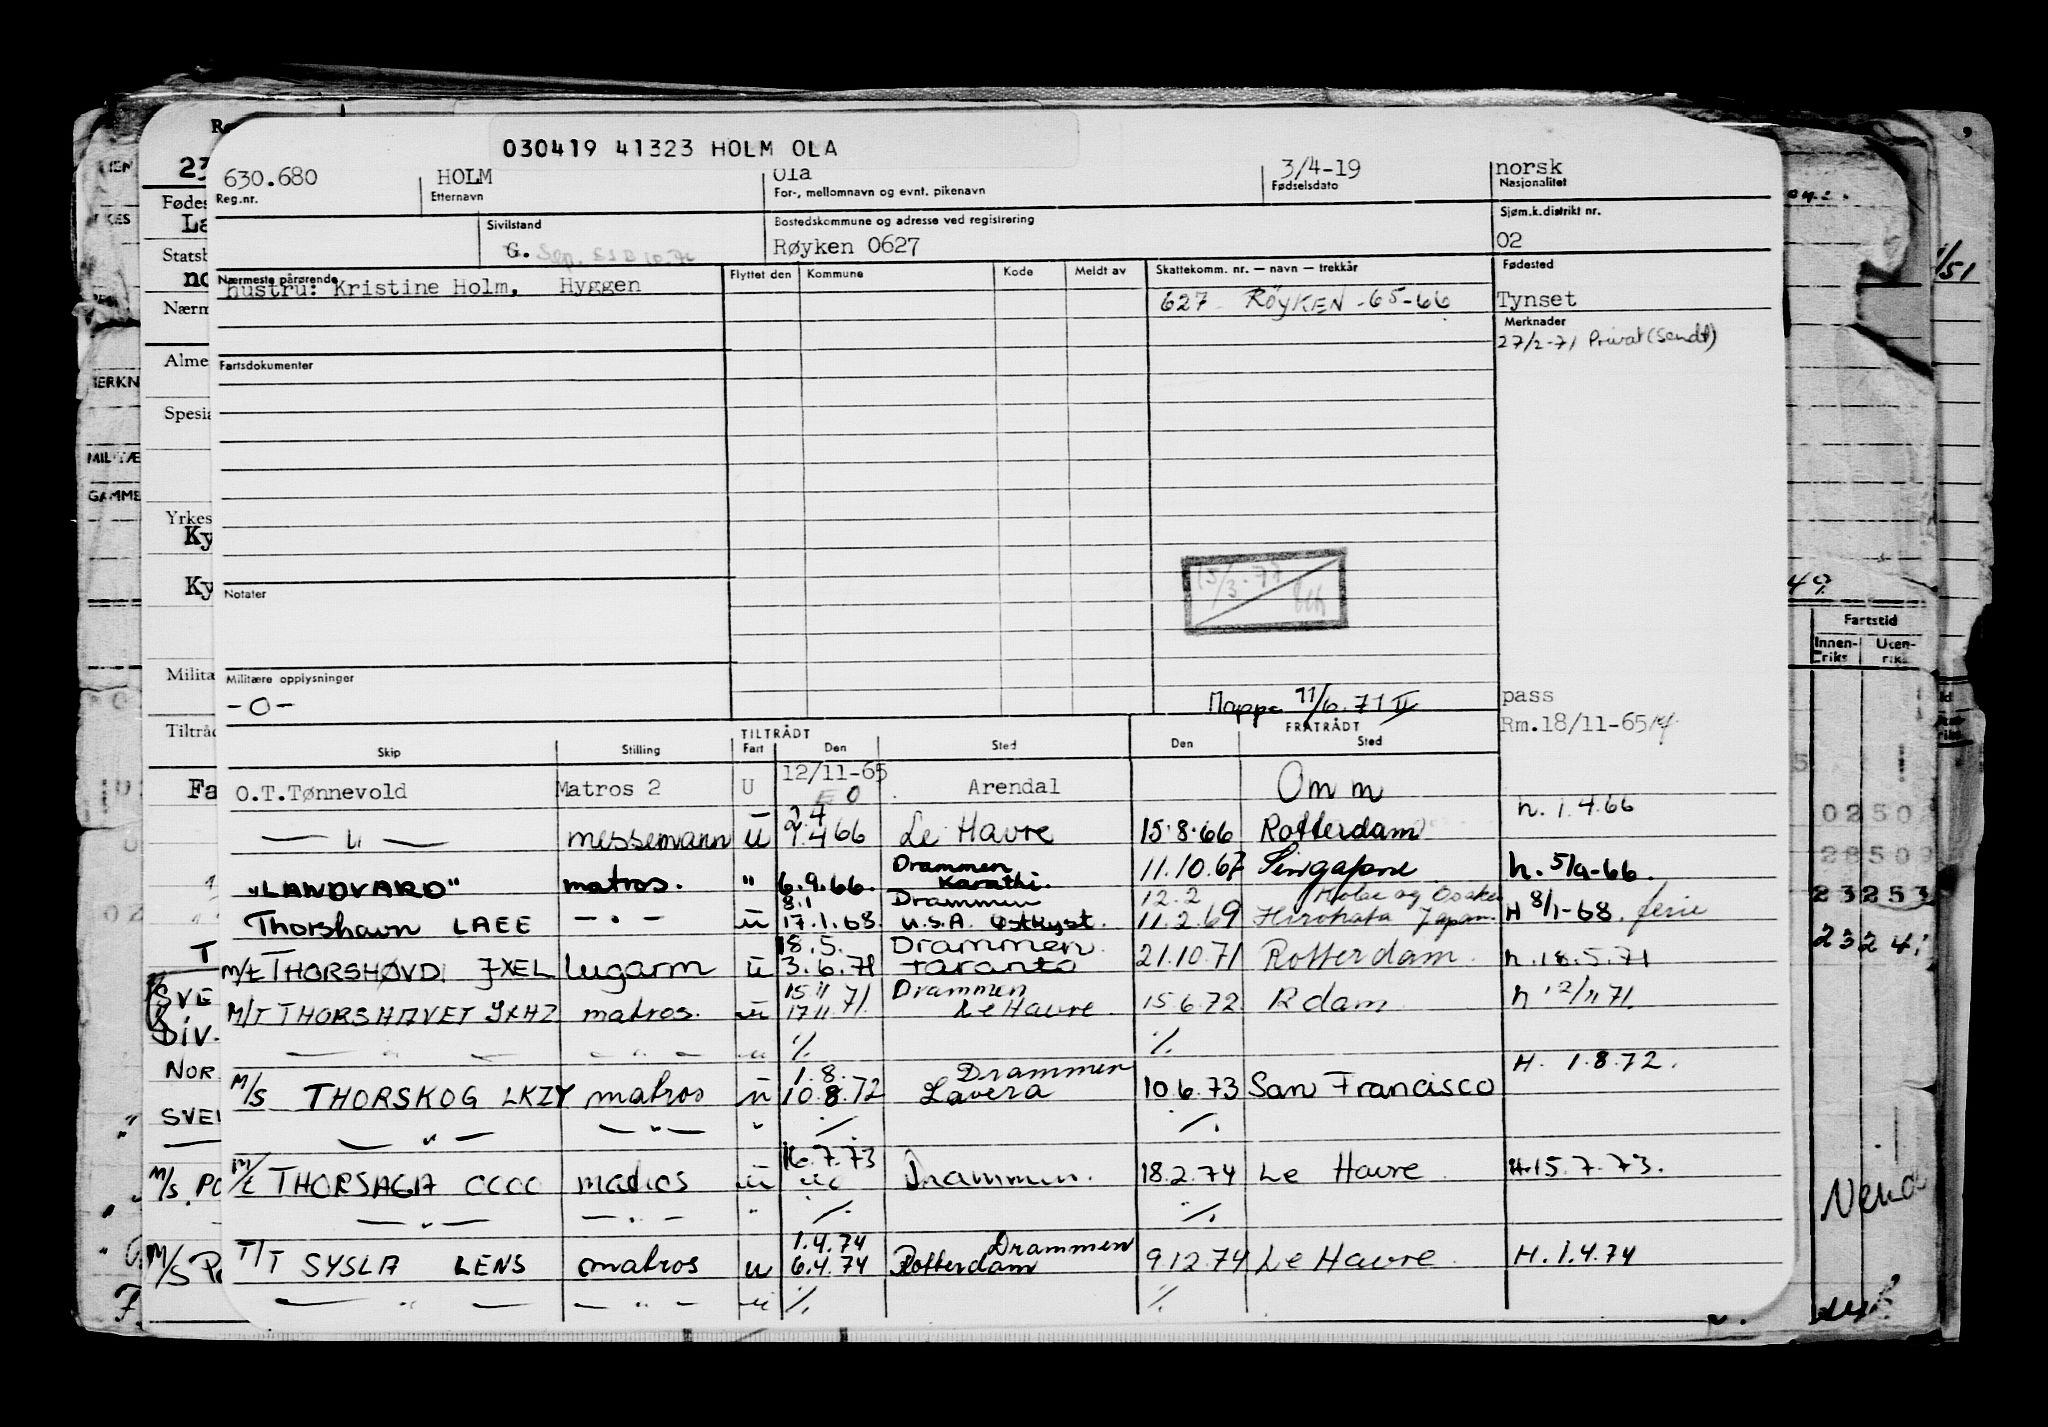 030419 41323 HOLM OLA
630.680 HOLM Ola 3/4-19 norsk
Reg.nr. Etternavn For-, mellomnavn og evnt. pikenavn Fødselsdato Nasjonalitet
Sivilstand Bostedskommune og adresse ved registrering Sjøm.k.distrikt nr.
G. Røyken 0627 02
Nærmeste pårørende Flyttet den Kommune Kode Meldt av Skattekomm. nr. — navn — trekkår Fødested
hustru: Kristine Holm, Hyggen 627 RØYKEN -65-66 Tynset
Merknader
27/2-71 Privat (sendt)
Fartsdokumenter
Notater
15/3-77
Militære opplysninger
-O-
Mappe 11/6.71 II
pass
Rm.18/11-65
TILTRÅDT FRATRÅDT
Skip Stilling Fart Den Sted Den Sted
O.T.Tønnevold Matros 2 U 12/11-65 Arendal Omm
EO
— " — messemann U 2.4 7.4 66 Le Havre 15.8.66 Rotterdam h. 1.4.66
"LANDVARD" matros. " 6.9.66. Drammen Karathi. 11.10.67 Singapore h. 5/9-66.
Thorshavn LAEE — " — U 8.1 17.1.68. Drammen U.S.A. Østkyst. 12.2 11.2.69 Kobe og Osaka Hirohata Japan. H 8/1-68. ferie
M/t THORSHØVDI JXEL lugarm U 18.5. 3.6.71 Drammen Taranto 21.10.71 Rotterdam. h. 18.5.71
M/T THORSHAVET JXHZ matros. U 15/11 71 17/11 71 Drammen Le Havre 15.6.72 Rdam h 12/11 71.
— " — — " — " % %
M/S THORSKOG LKZY matros U 1.8. 10.8.72 Drammen Lavera 10.6.73 San Francisco H. 1.8.72.
— " — — " — " % %
M/t THORSAGA CCCC matros U 16.7.73 Drammen. 18.2.74 Le Havre H.15.7.73.
— " — — " — " % %
T/T SYSLA LENS matros U 1.4.74 6.4.74 Drammen Rotterdam 9.12.74 Le Havre H. 1.4.74
— " — — " — " % %
Fødes
Statsb
Nærm
Alme
Spesia
Yrkes
Ky
Ky
Milita
Tiltråd
Fa
SVE
DIV.
NOR
SVE
M/S PO
M/S Po
ERKN
MILITÆ
GAMME
/51
49
Fartstid
Innenriks Utenriks
0250
28509
23253
2324